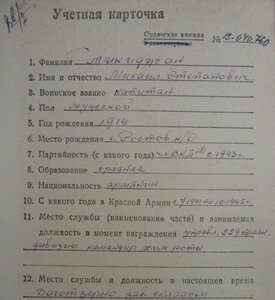 Учетная карточка
Орденская книжка
Удостоверение № В-040.760
1. Фамилия Тикиджан
2. Имя и отчество Михаил Степанович
3. Воинское звание капитан
4. Пол мужской
5. Год рождения 1914
6. Место рождения г. Ростов н/Д
7. Партийность (с какого года) чл. ВКП(б) с 1943 г.
8. Образование среднее
9. Национальность армянин
10. С какого года в Красной Армии с 1941 по 10-1945 г.
11. Место службы (наименование части) и занимаемая
должность в момент награждения управл. 229 стрелк.
дивизии командир хим роты
12. Место службы и должность в настоящее время
зав. складом